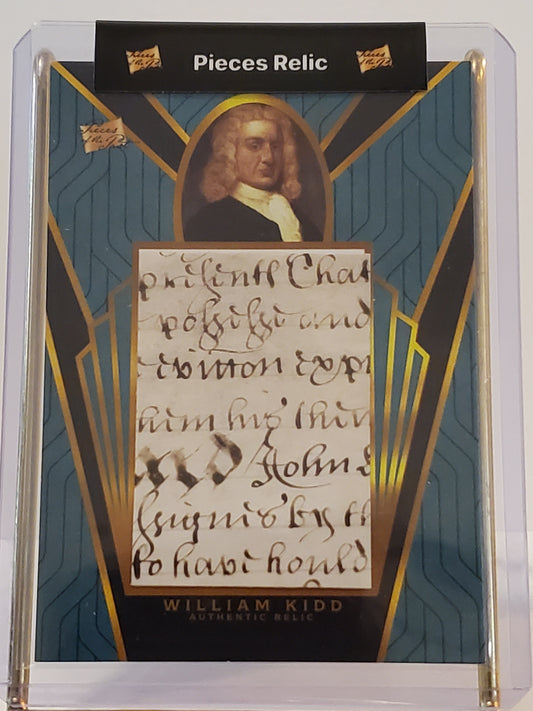 Pieces of the Past
Pieces Relic
Pieces of the Past
Pieces of the Past
presents That
possesse and
evitton exp
him his then
and John
ssignes by th
to have hould
WILLIAM KIDD
AUTHENTIC RELIC